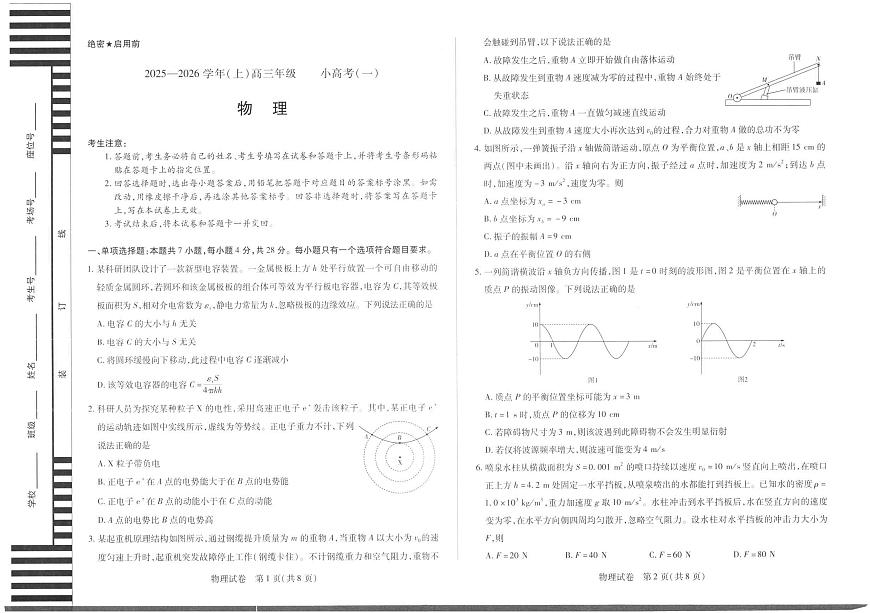 绝密★启用前
2025—2026 学年(上)高三年级 小高考(一)
物 理
考生注意:
1. 答题前,考生务必将自己的姓名、考生号填写在试卷和答题卡上,并将考生号条形码粘
贴在答题卡上的指定位置。
2. 回答选择题时,选出每小题答案后,用铅笔把答题卡对应题目的答案标号涂黑。如需
改动,用橡皮擦干净后,再选涂其他答案标号。回答非选择题时,将答案写在答题卡
上,写在本试卷上无效。
3. 考试结束后,将本试卷和答题卡一并交回。
一、单项选择题:本题共 7 小题,每小题 4 分,共 28 分。每小题只有一个选项符合题目要求。
1. 某科研团队设计了一款新型电容装置。一金属极板上方 h 处平行放置一个可自由移动的
轻质金属圆环,若圆环和该金属极板的组合体可等效为平行板电容器,电容为 C,其等效极
板面积为 S,相对介电常数为 εr,静电力常量为 k,忽略极板的边缘效应。下列说法正确的是
A. 电容 C 的大小与 h 无关
B. 电容 C 的大小与 S 无关
C. 将圆环缓慢向下移动,此过程中电容 C 逐渐减小
D. 该等效电容器的电容 C = εrS/4πkh
2. 科研人员为探究某种粒子 X 的电性,采用高速正电子 e⁺ 轰击该粒子。其中,某正电子 e⁺
的运动轨迹如图中实线所示,虚线为等势线。正电子重力不计,下列
说法正确的是
A. X 粒子带负电
B. 正电子 e⁺ 在 A 点的电势能大于在 B 点的电势能
C. 正电子 e⁺ 在 B 点的动能小于在 C 点的动能
D. A 点的电势比 B 点的电势高
A
B
C
X
3. 某起重机原理结构如图所示,通过钢缆提升质量为 m 的重物 A,当重物 A 以大小为 v₀ 的速
度匀速上升时,起重机突发故障停止工作(钢缆卡住)。不计钢缆重力和空气阻力,重物不
物理试卷 第 1 页(共 8 页)
会触碰到吊臂,以下说法正确的是
A. 故障发生之后,重物 A 立即开始做自由落体运动
B. 从故障发生到重物 A 速度减为零的过程中,重物 A 始终处于
失重状态
C. 故障发生之后,重物 A 一直做匀减速直线运动
D. 从故障发生到重物 A 速度大小再次达到 v₀ 的过程,合力对重物 A 做的总功不为零
吊臂
N
M
A
O
吊臂液压缸
4. 如图所示,一弹簧振子沿 x 轴做简谐运动,原点 O 为平衡位置,a、b 是 x 轴上相距 15 cm 的
两点(图中未画出)。沿 x 轴向右为正方向,振子经过 a 点时,加速度为 2 m/s²;到达 b 点
时,加速度为 −3 m/s²,速度为零。则
A. a 点坐标为 xa = −3 cm
B. b 点坐标为 xb = −9 cm
C. 振子的振幅 A = 9 cm
D. a 点在平衡位置 O 的右侧
O
x
5. 一列简谐横波沿 x 轴负方向传播,图 1 是 t = 0 时刻的波形图,图 2 是平衡位置在 x 轴上的
质点 P 的振动图像。下列说法正确的是
y/cm
10
0
1
−10
x/m
图1
y/cm
10
0
2
−10
t/s
图2
A. 质点 P 的平衡位置坐标可能为 x = 3 m
B. t = 1 s 时,质点 P 的位移为 10 cm
C. 若障碍物尺寸为 3 m,则该波遇到此障碍物不会发生明显衍射
D. 若仅将波源频率增大,则波速可能变为 4 m/s
6. 喷泉水柱从横截面积为 S = 0.001 m² 的喷口持续以速度 v₀ = 10 m/s 竖直向上喷出,在喷口
正上方 h = 4.2 m 处固定一水平挡板,从喷泉喷出的水都能打到挡板上。已知水的密度 ρ =
1.0 × 10³ kg/m³,重力加速度 g 取 10 m/s²。水柱冲击到水平挡板后,水在竖直方向的速度
变为零,在水平方向朝四周均匀散开,忽略空气阻力。设水柱对水平挡板的冲击力大小为
F,则
A. F = 20 N B. F = 40 N C. F = 60 N D. F = 80 N
物理试卷 第 2 页(共 8 页)
座位号
考场号
考生号
姓名
班级
学校
线
订
装